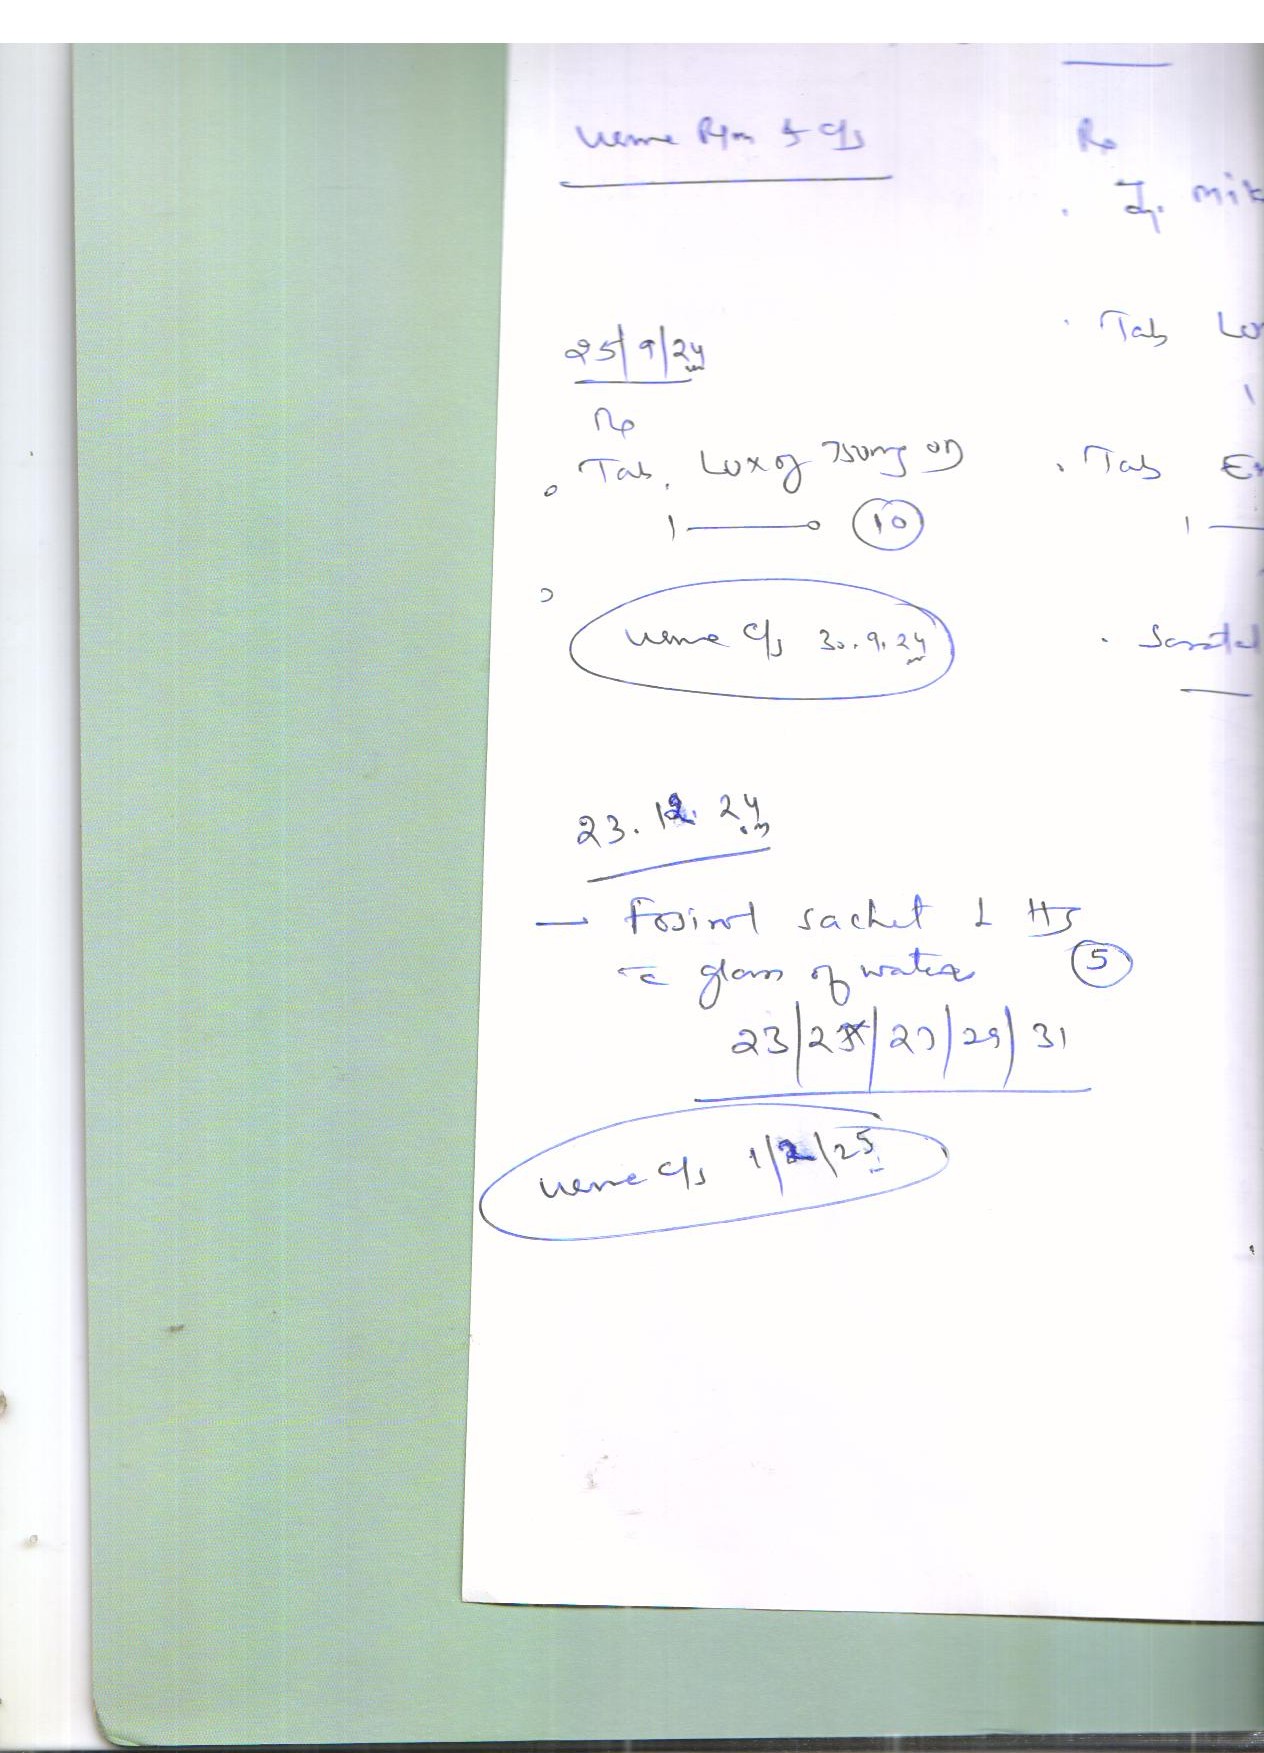 urine R/m & c/s
25/9/24
Rp
Tab. Loxof 750mg OD
1 ——— 0 10
urine c/s 30.9.24
23.12.24
— Fosirol sachet 1 HS
c̄ glass of water 5
23/25/27/29/31
urine c/s 1/2/25
Rp
. Inj. mik
. Tab Lo
1
. Tab E
1 —